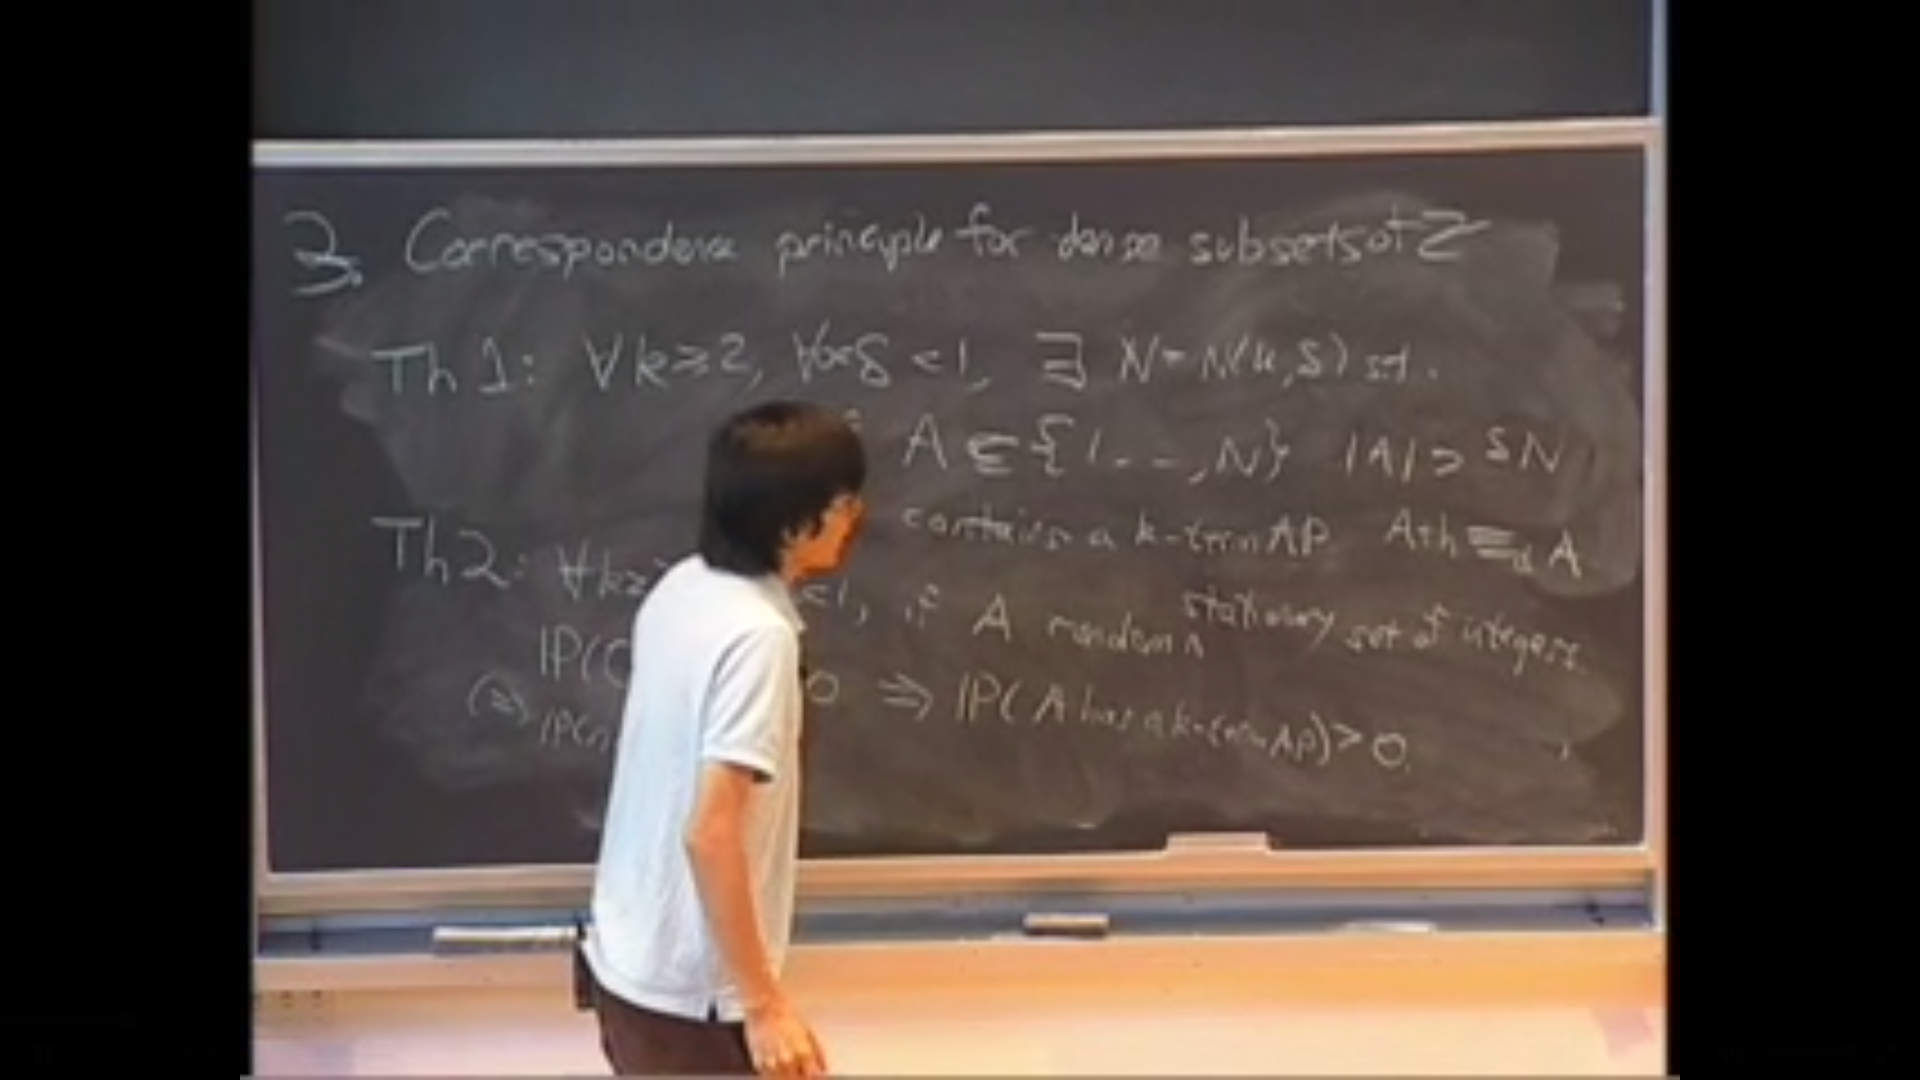 3. Correspondence principle for dense subsets of Z
Th 1: ∀k≥2, ∀0<δ<1, ∃ N=N(k,δ) s.t.
A ⊆ {1--,N} |A| ≥ δN
contains a k-term AP A+h ≡d A
Th 2: ∀k≥ <1, if A random ^ stationary set of integers.
IP(0 >0 ⇒ IP(A has a k-term AP)>0.
(≥) IP(